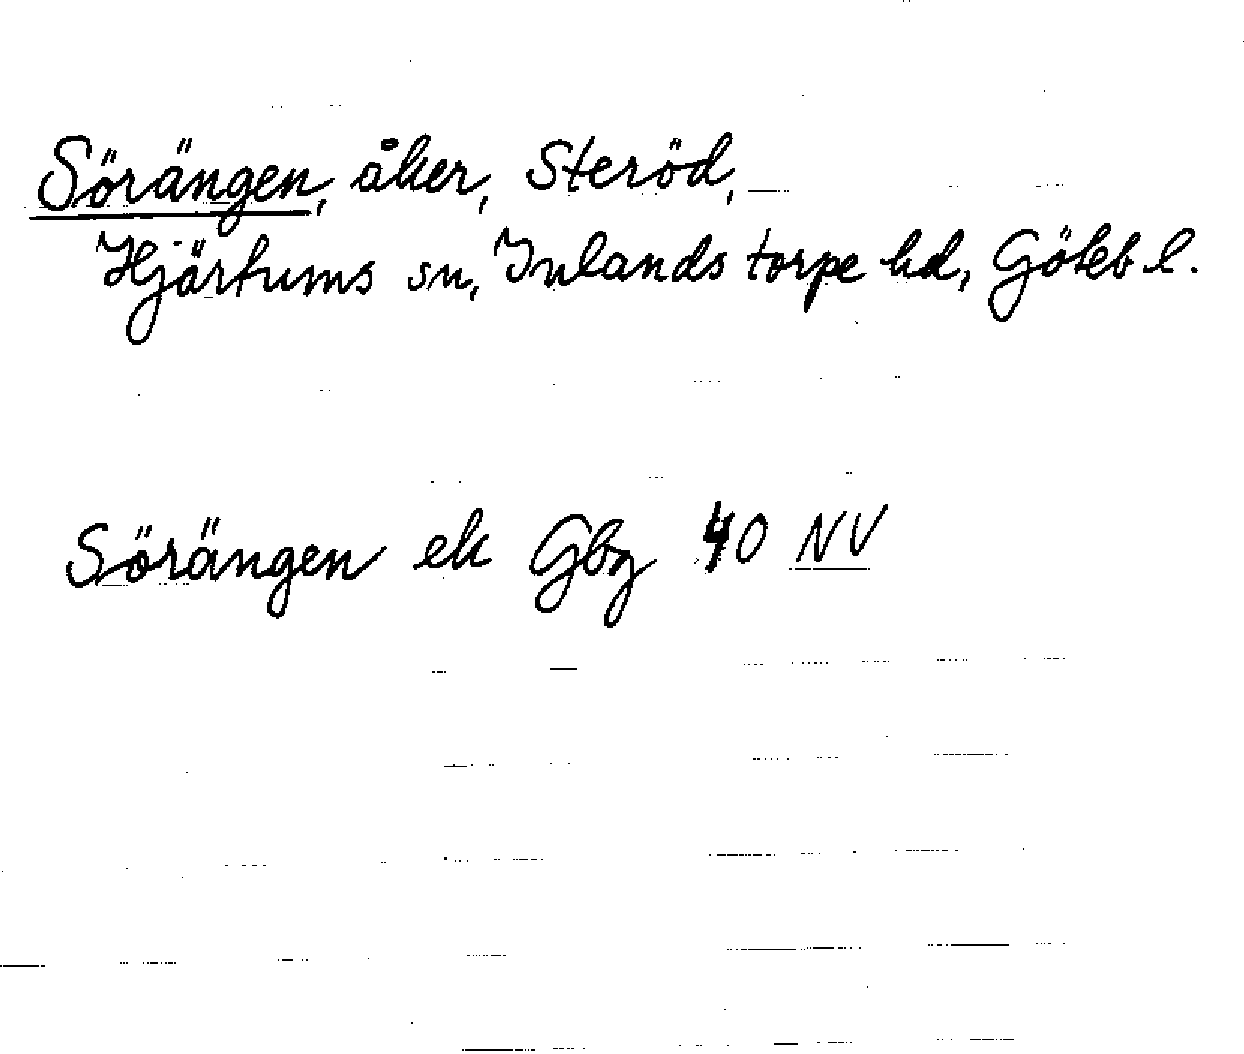 Sörängen, åker, Steröd,
Hjärtums sn, Inlands torpe hd, Göteb l.
Sörängen ek Gbg 40 NV